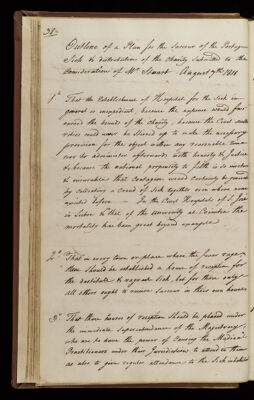 31
Outline of a Plan for the Succour of the Portuguese
Sick & distribution of the Charity submitted to the
Consideration of Mr Stuart - August 9th 1811
1st That the Establishment of Hospitals for the Sick in
general is inexpedient, because the expense would far
exceed the bounds of the charity, because the
could never be to make the necessary
provision for the object within any reasonable time
nor be administer afterwards with honesty & Justice
& because the national propensity to filth is so
& that contagion would certainly be
by collecting a Crowd of Sick together even where none
existed before - In the Civil Hospitals of S. José
in Lisbon & that of the university at Coimbra the
mortality has been great beyond example
2d That in every town or place where the fever rages
there should be established a house of reception for
the destitute & Sick, but for these only
all others ought to receive Succour in their own houses
3d That these houses of reception should be placed under
the immediate Superintendance of the Magistracy,
who are to have the power of Causing the Medical
Practitioners under their Jurisdiction to attend to them
as also to give regular attendance to the Sick